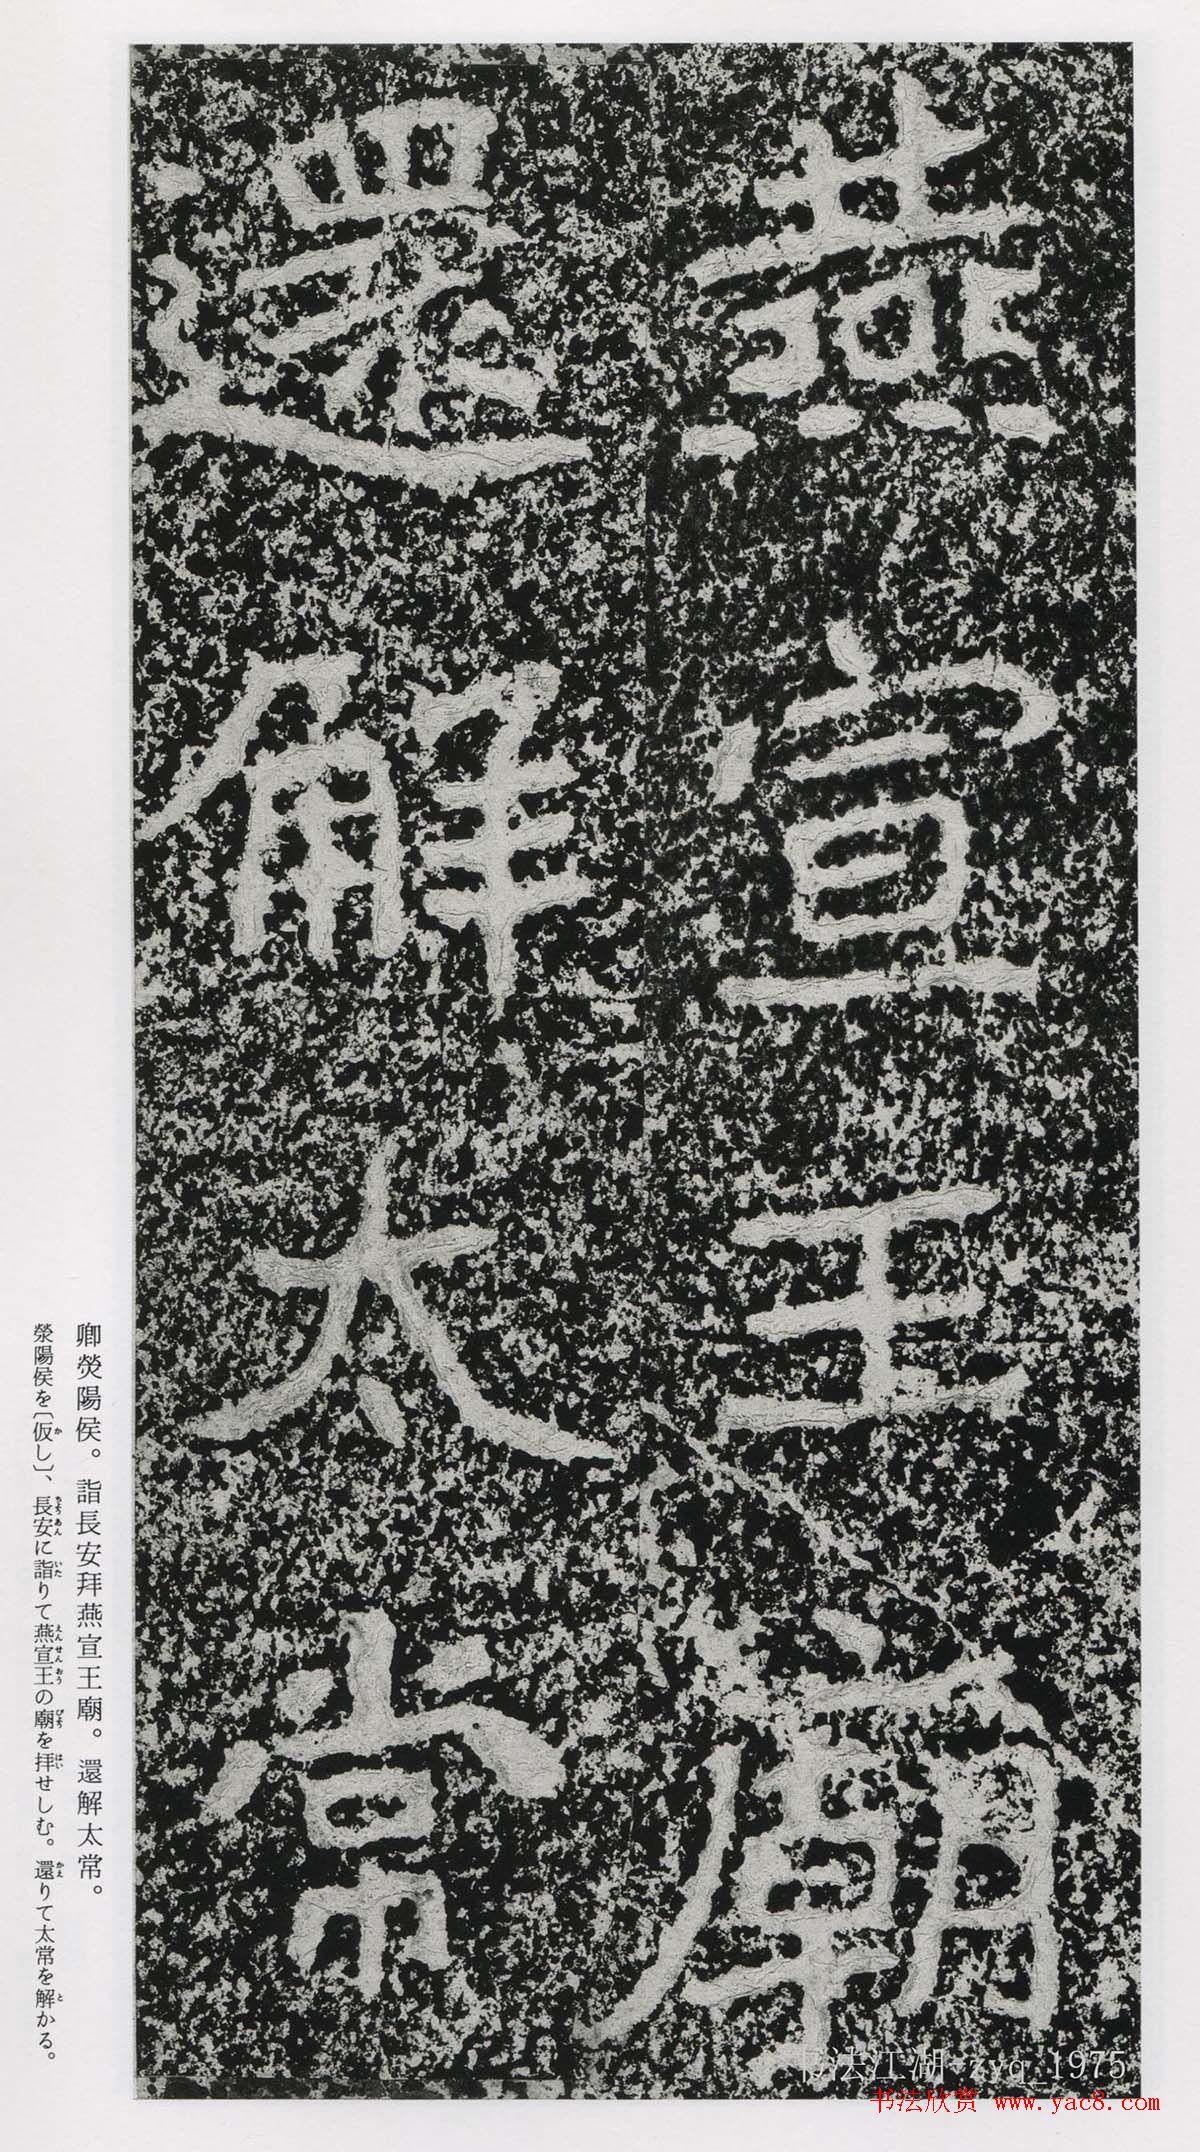 燕宣王廟
還解太常
卿熒陽侯。詣長安拜燕宣王廟。還解太常。
滎陽侯を〔仮し〕、長安に詣りて燕宣王の廟を拝せしむ。還りて太常を解かる。
书法江湖-zyq_1975
书法欣赏 www.yac8.com